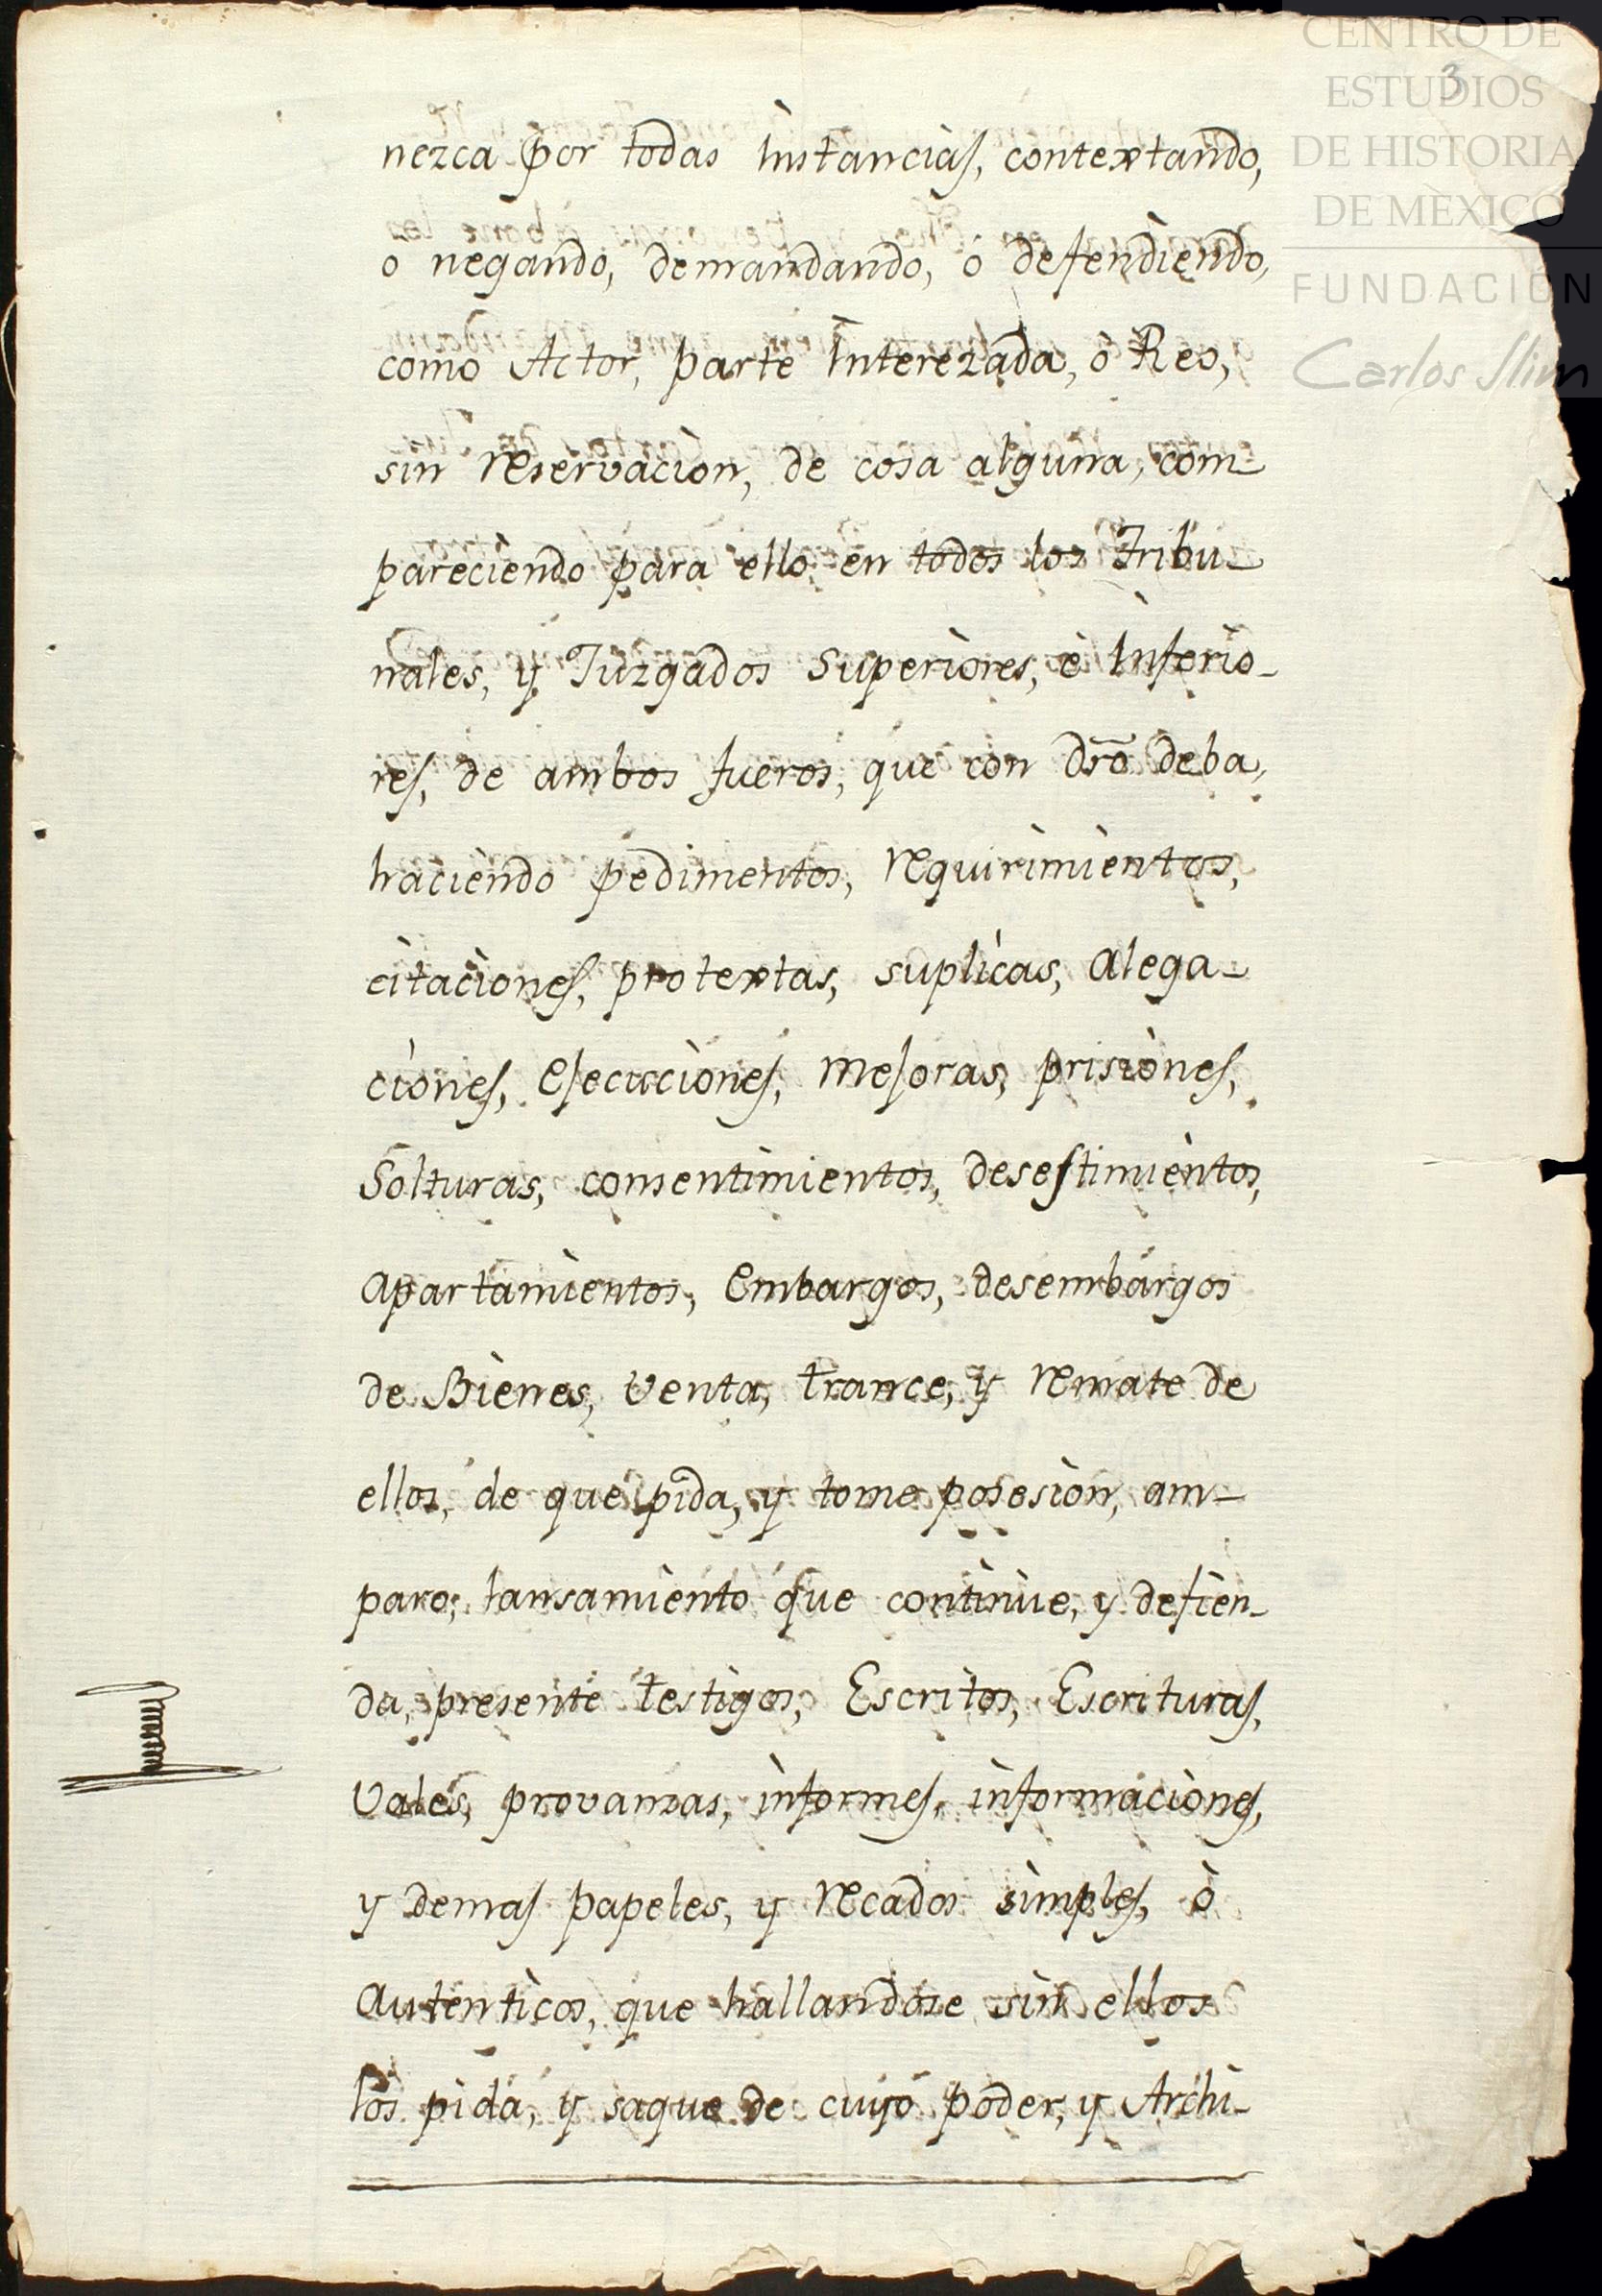 CENTRO DE
ESTUDIOS
DE HISTORIA
DE MÉXICO
FUNDACIÓN
Carlos Slim
3
nezca por todas instancias, contextando,
o negando, demandando, ó defendiendo,
como Actor, parte Interezada, ò Reo,
sin reservacion, de cosa alguna, com-
pareciendo para ello en todos los Tribu-
nales, y Juzgados Superiores, è Inferio-
res, de ambos fueros, que con dr̃o deba,
haciendo pedimentos, requirimientos,
citaciones, protextas, suplicas, alega-
ciones, Esecuciones, mejoras, prisiones,
Solturas, consentimientos, desestimientos,
apartamientos, Embargos, desembargos
de Bienes, venta, trance, y remate de
ellos, de que pida, y tome posesion, am-
paro, lansamiento que continùe, y defien-
da, presente testigos, Escritos, Escrituras,
vales, provanzas, informes, informaciones,
y demas papeles, y recados simples, ò
autenticos, que hallandose sin ellos
los pida, y saque de cuyo poder, y Archi-